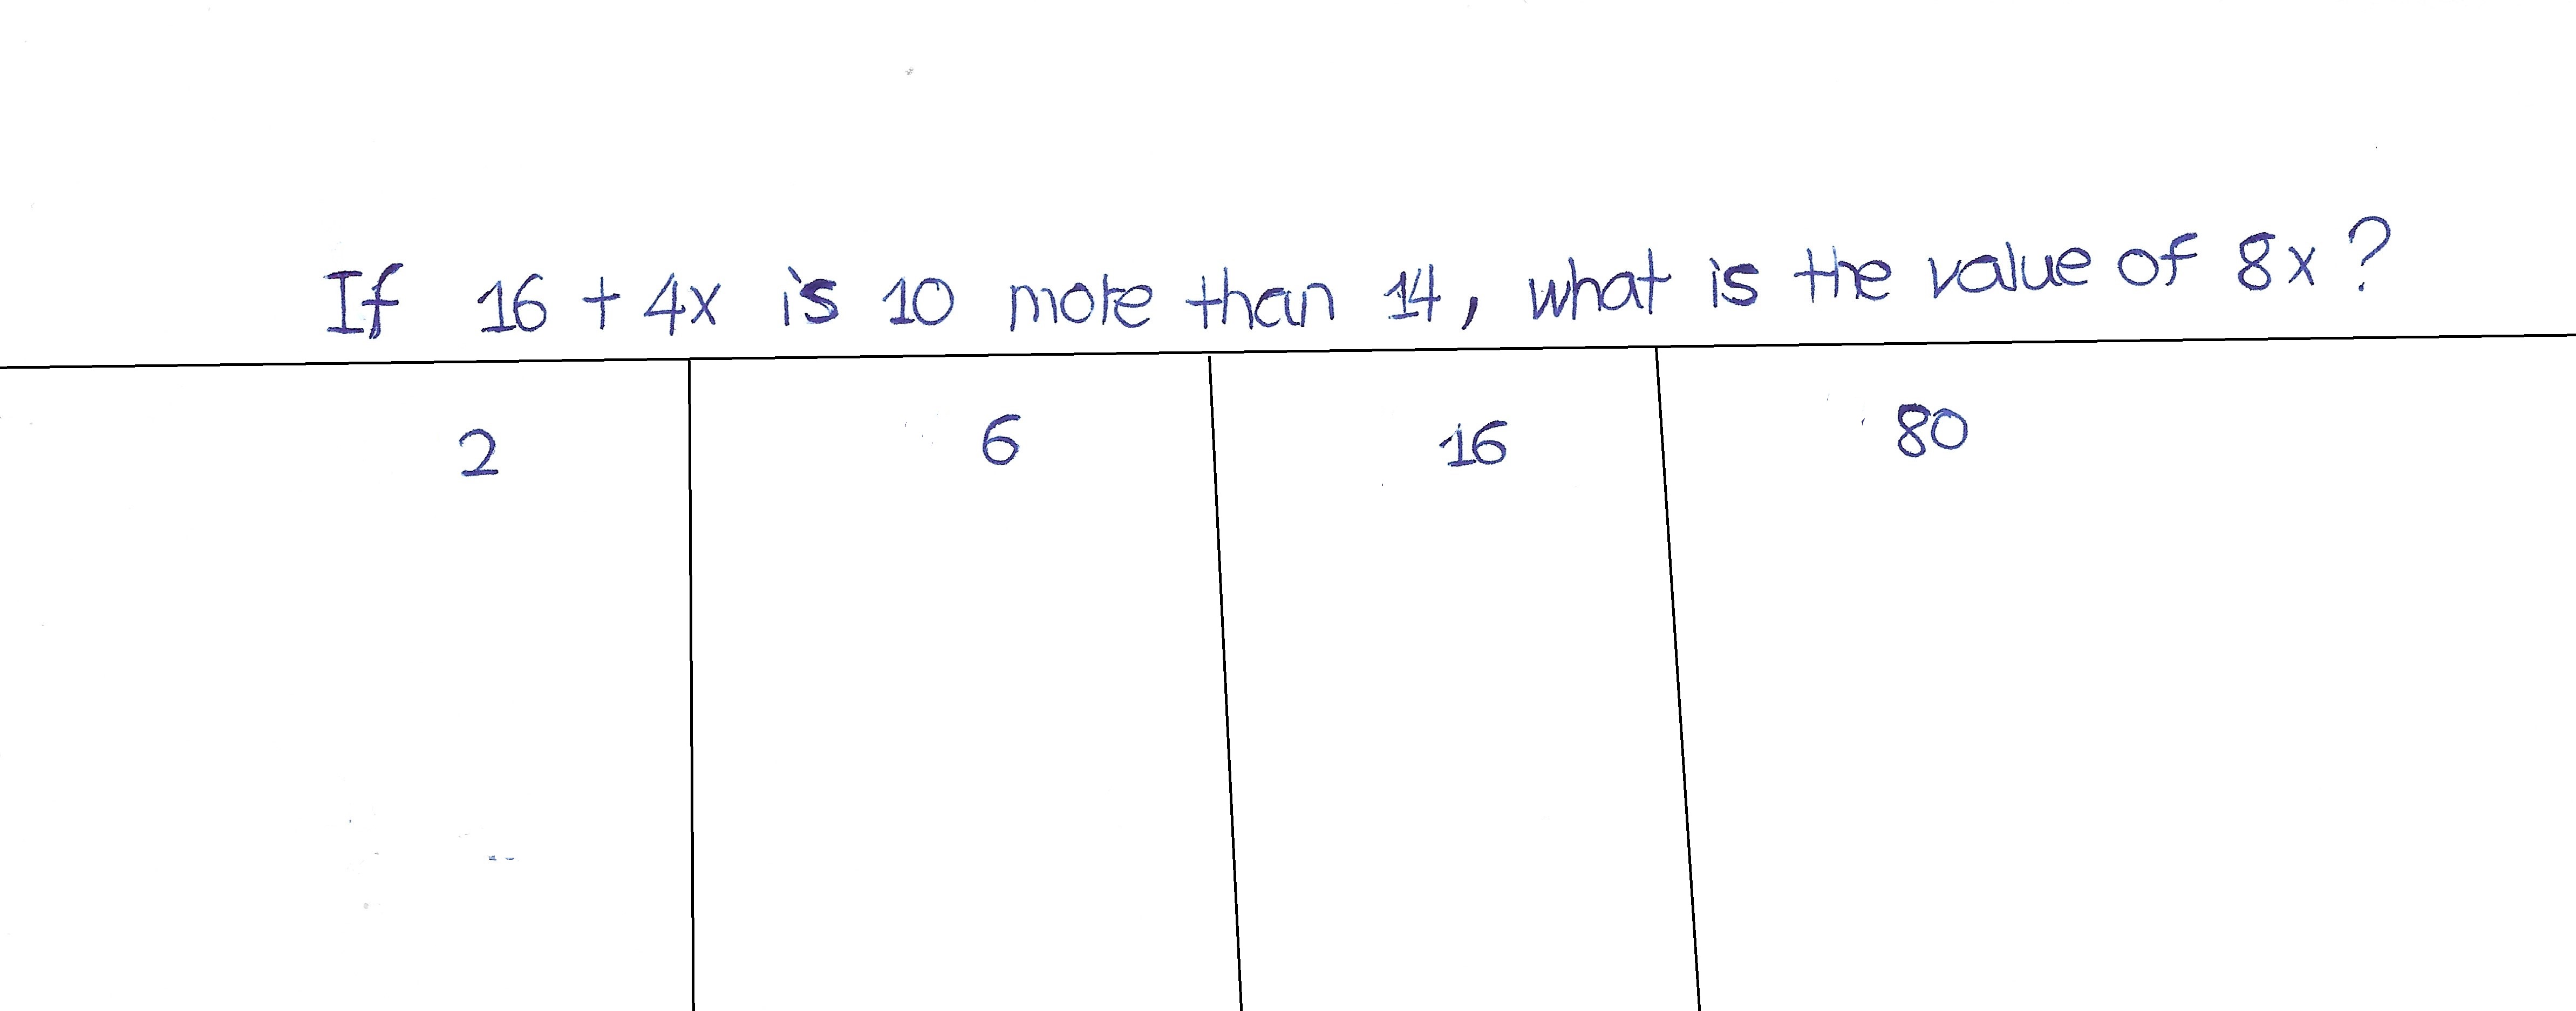 If 16 + 4x is 10 more than 14, what is the value of 8x?
2 6 16 80